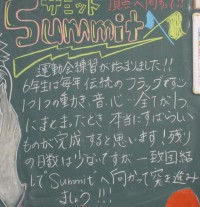 サミット
Summit
頂点へ向かって!!
運動会練習が始まりました!!
6年生は毎年伝統のフラッグです。
1つ1つの動き、音、心…全てが1つ
にまとまったとき本当にすばらしい
ものが完成すると思います!残り
の日数は少ないですが一致団結
して"Summit"へ向かって突き進み
ましょう!!!